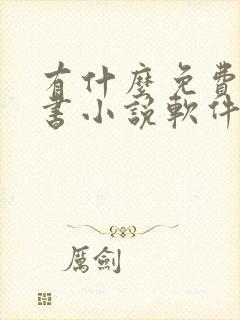 有什麼免費
書小說軟件
厲劍